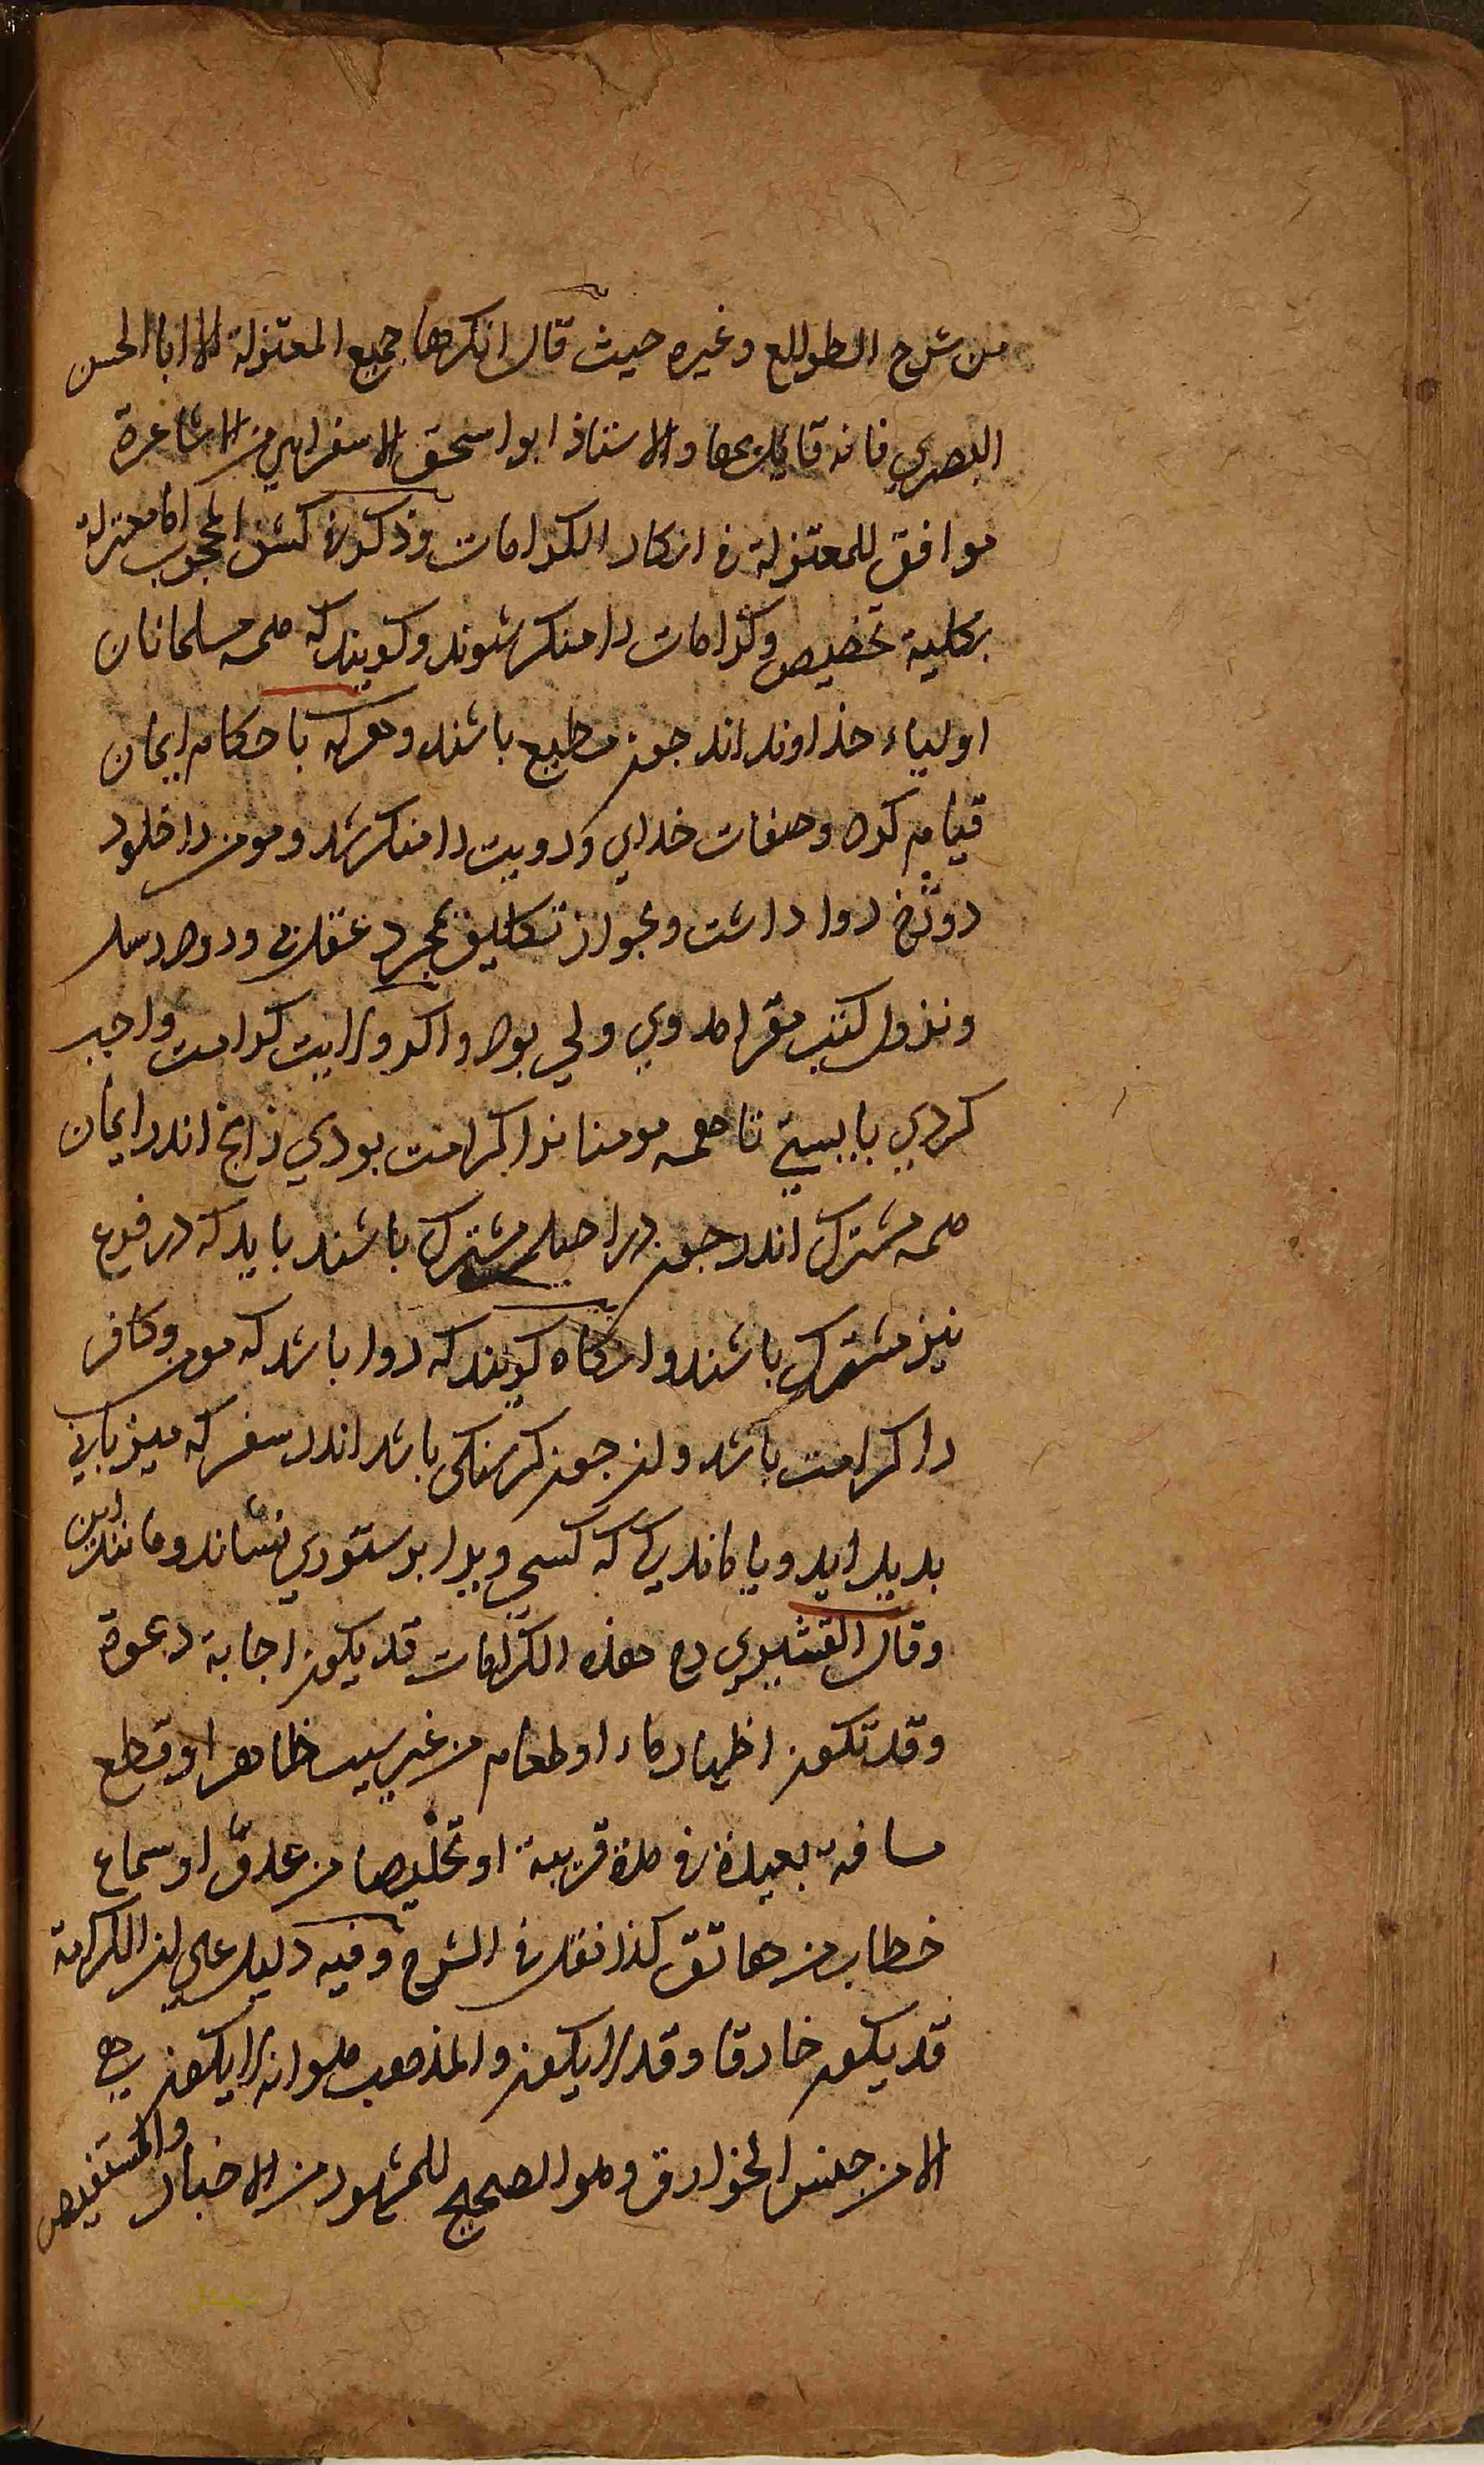 من شرح الطوالع وغيره حيث قال انكرها جميع المعتزلة الا ابا الحسن
البصري فانه قايل بها والاستاذ ابو اسحق الاسفرايني من الاشاعرة
موافق للمعتزلة في انكار الكرامات وذكر في كشف المحجوب اما معتزله
بكلية تخصيص وكرامات را منكر شوند وكويند كه همه مسلمانان
اولياء خداوند اند جون مطيع باشند وهركه باحكام ايمان
قيام كرد وصفات خداي و رويت را منكر شد ومومن را خلود
دوزخ روا داشت وبجواز تكليف بمجرد عقل بي ورود رسل
ونزول كتب مقر امد وي ولي بود واكر ولايت كرامت واجب
كردي بايستي تا همه مومنانرا كرامت بودي زانج اندر ايمان
همه مشترك اند جون در اصل مشترك باشند بايد كه در فرع
نيز مشترك باشند وانكاه كويند كه روا باشد كه مومن وكافر
را كرامت باشد وان جون كرسنكي باشد اندر سفر كه ميزباني
بديد ايد ويا ماندكي كه كسي ويرا بر ستوري نشاند ومانند اين
وقال القشيري رح هذه الكرامات قد يكون اجابة دعوة
وقد تكون اظهار ماء او طعام من غير سبب ظاهر او قطع
مسافة بعيدة في مدة قريبة او تخليصا من عدوّ او سماع
خطاب من هاتف كذا نقل في الشرح وفيه دليل علي ان الكرامة
قد يكون خارقا وقد لا يكون والمذهب هو انه لا يكون
الا من جنس الخوارق وهو الصحيح للمشهور من الاخبار والمستفيض